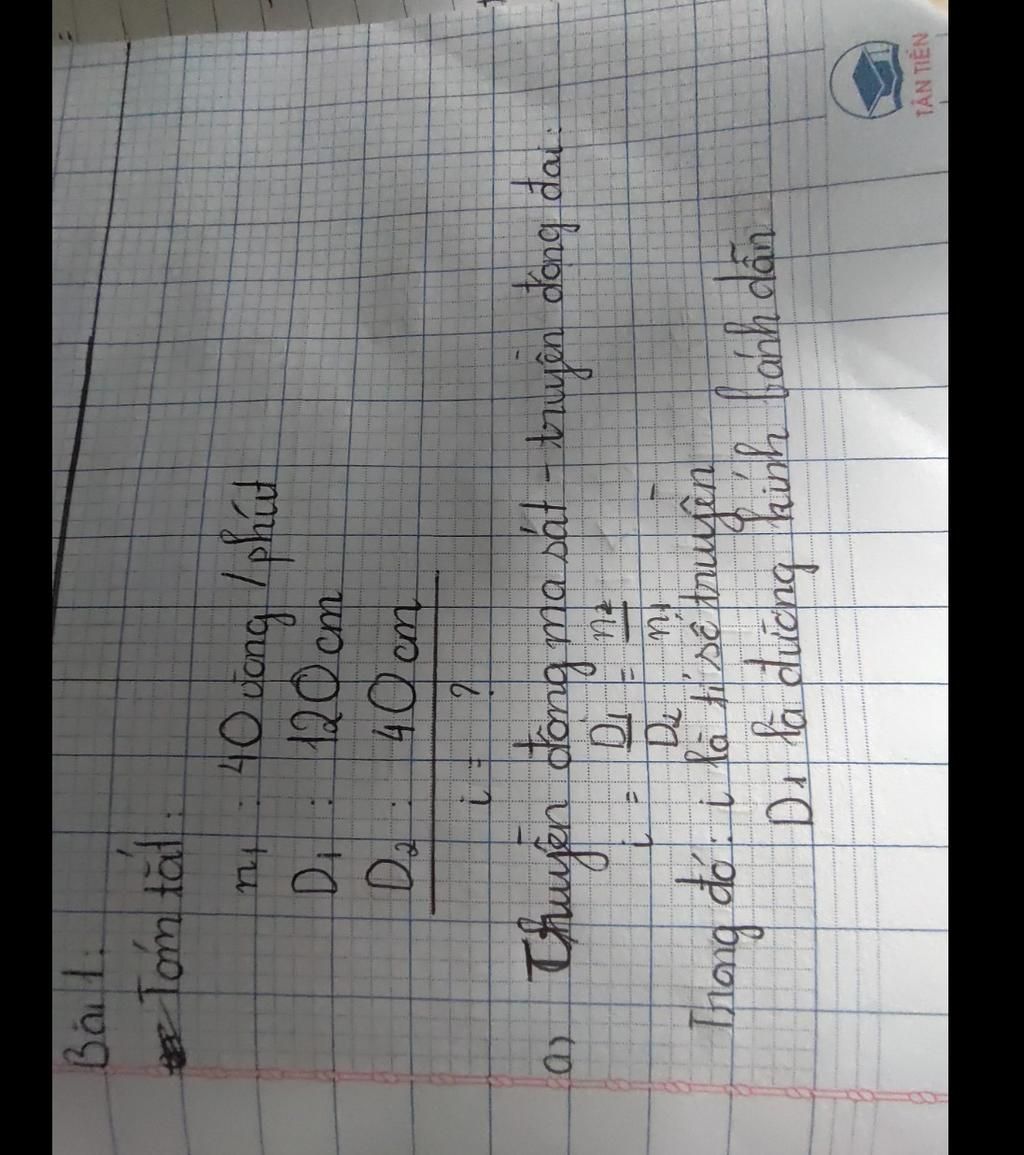 Bài 1:
Tóm tắt:
n1 : 40 vòng / phút
D1 : 120 cm
D2 : 40 cm
i = ?
a) Truyền động ma sát - truyền động đai:
i = D1/D2 = n2/n1
Trong đó: i là tỉ số truyền
D1 là đường kính bánh dẫn
TÂN TIẾN